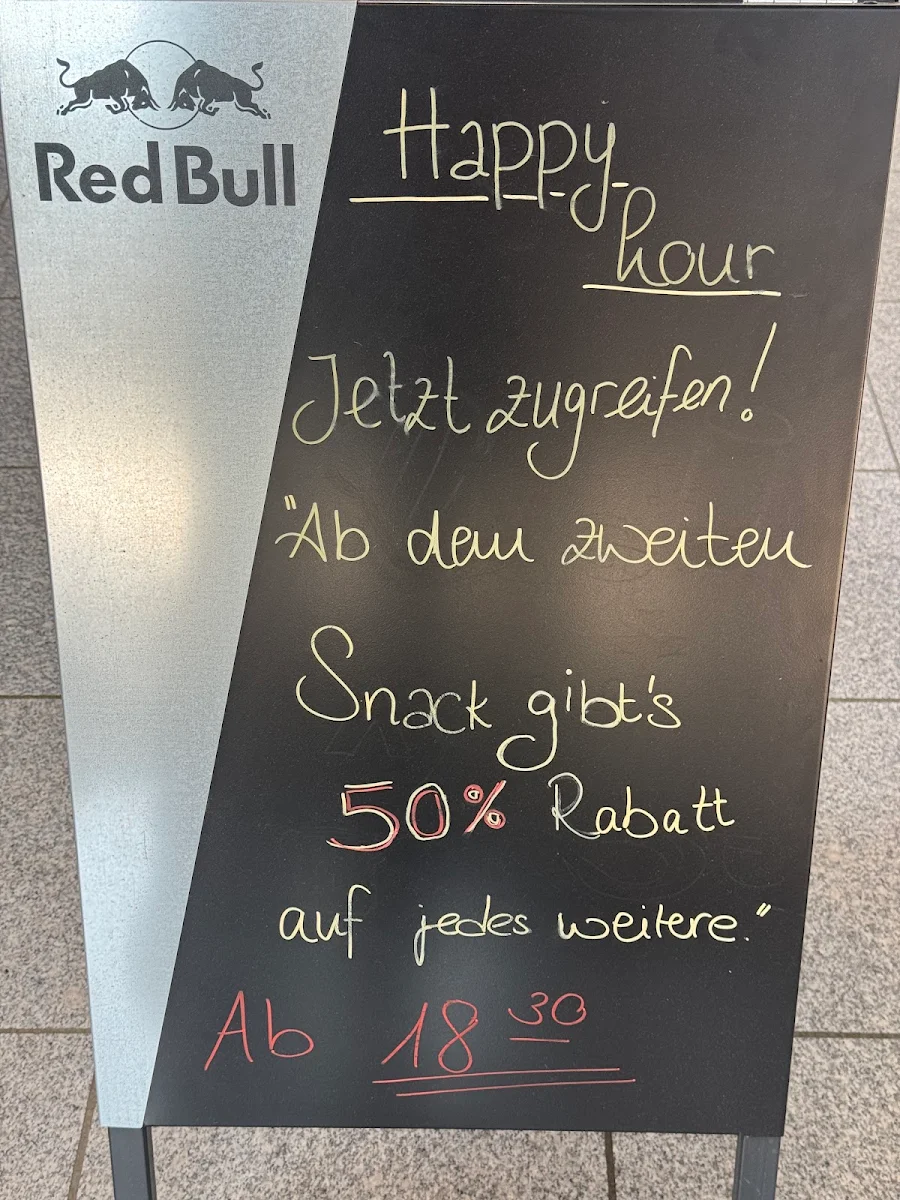 Red Bull
Happy
hour
Jetzt zugreifen!
"Ab dem zweiten
Snack gibt's
50% Rabatt
auf jedes weitere."
Ab 18 30